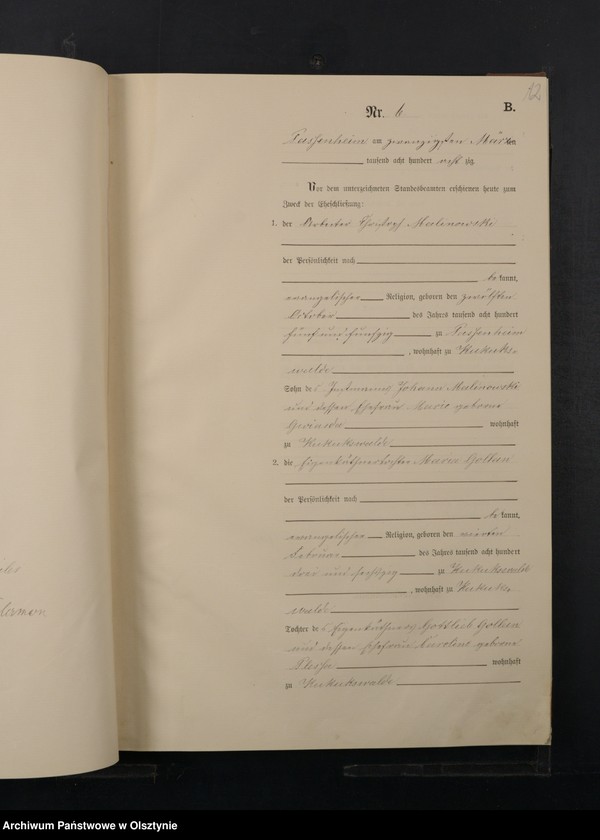 12
Nr. 6 B.
Passenheim am zwanzigsten März
tausend acht hundert acht zig
Vor dem unterzeichneten Standesbeamten erschienen heute zum
Zweck der Eheschließung:
1. der Arbeiter Malinowski
der Persönlichkeit nach
be kannt,
evangelischer Religion, geboren den zwölften
October des Jahres tausend acht hundert
fünf und fünfzig zu Passenheim
, wohnhaft zu Kukuks-
walde
Sohn des Instmanns Johann Malinowski
und dessen Ehefrau Marie geborne
wohnhaft
zu Kukukswalde
2. die Eigenkäthnertochter Maria
der Persönlichkeit nach
be kannt,
evangelischer Religion, geboren den vierten
Februar des Jahres tausend acht hundert
drei und sechszig zu Kukukswalde
, wohnhaft zu Kukuks-
walde
Tochter des Eigenkäthners Gottlieb
und dessen Ehefrau Caroline geborne
wohnhaft
zu Kukukswalde
Archiwum Państwowe w Olsztynie